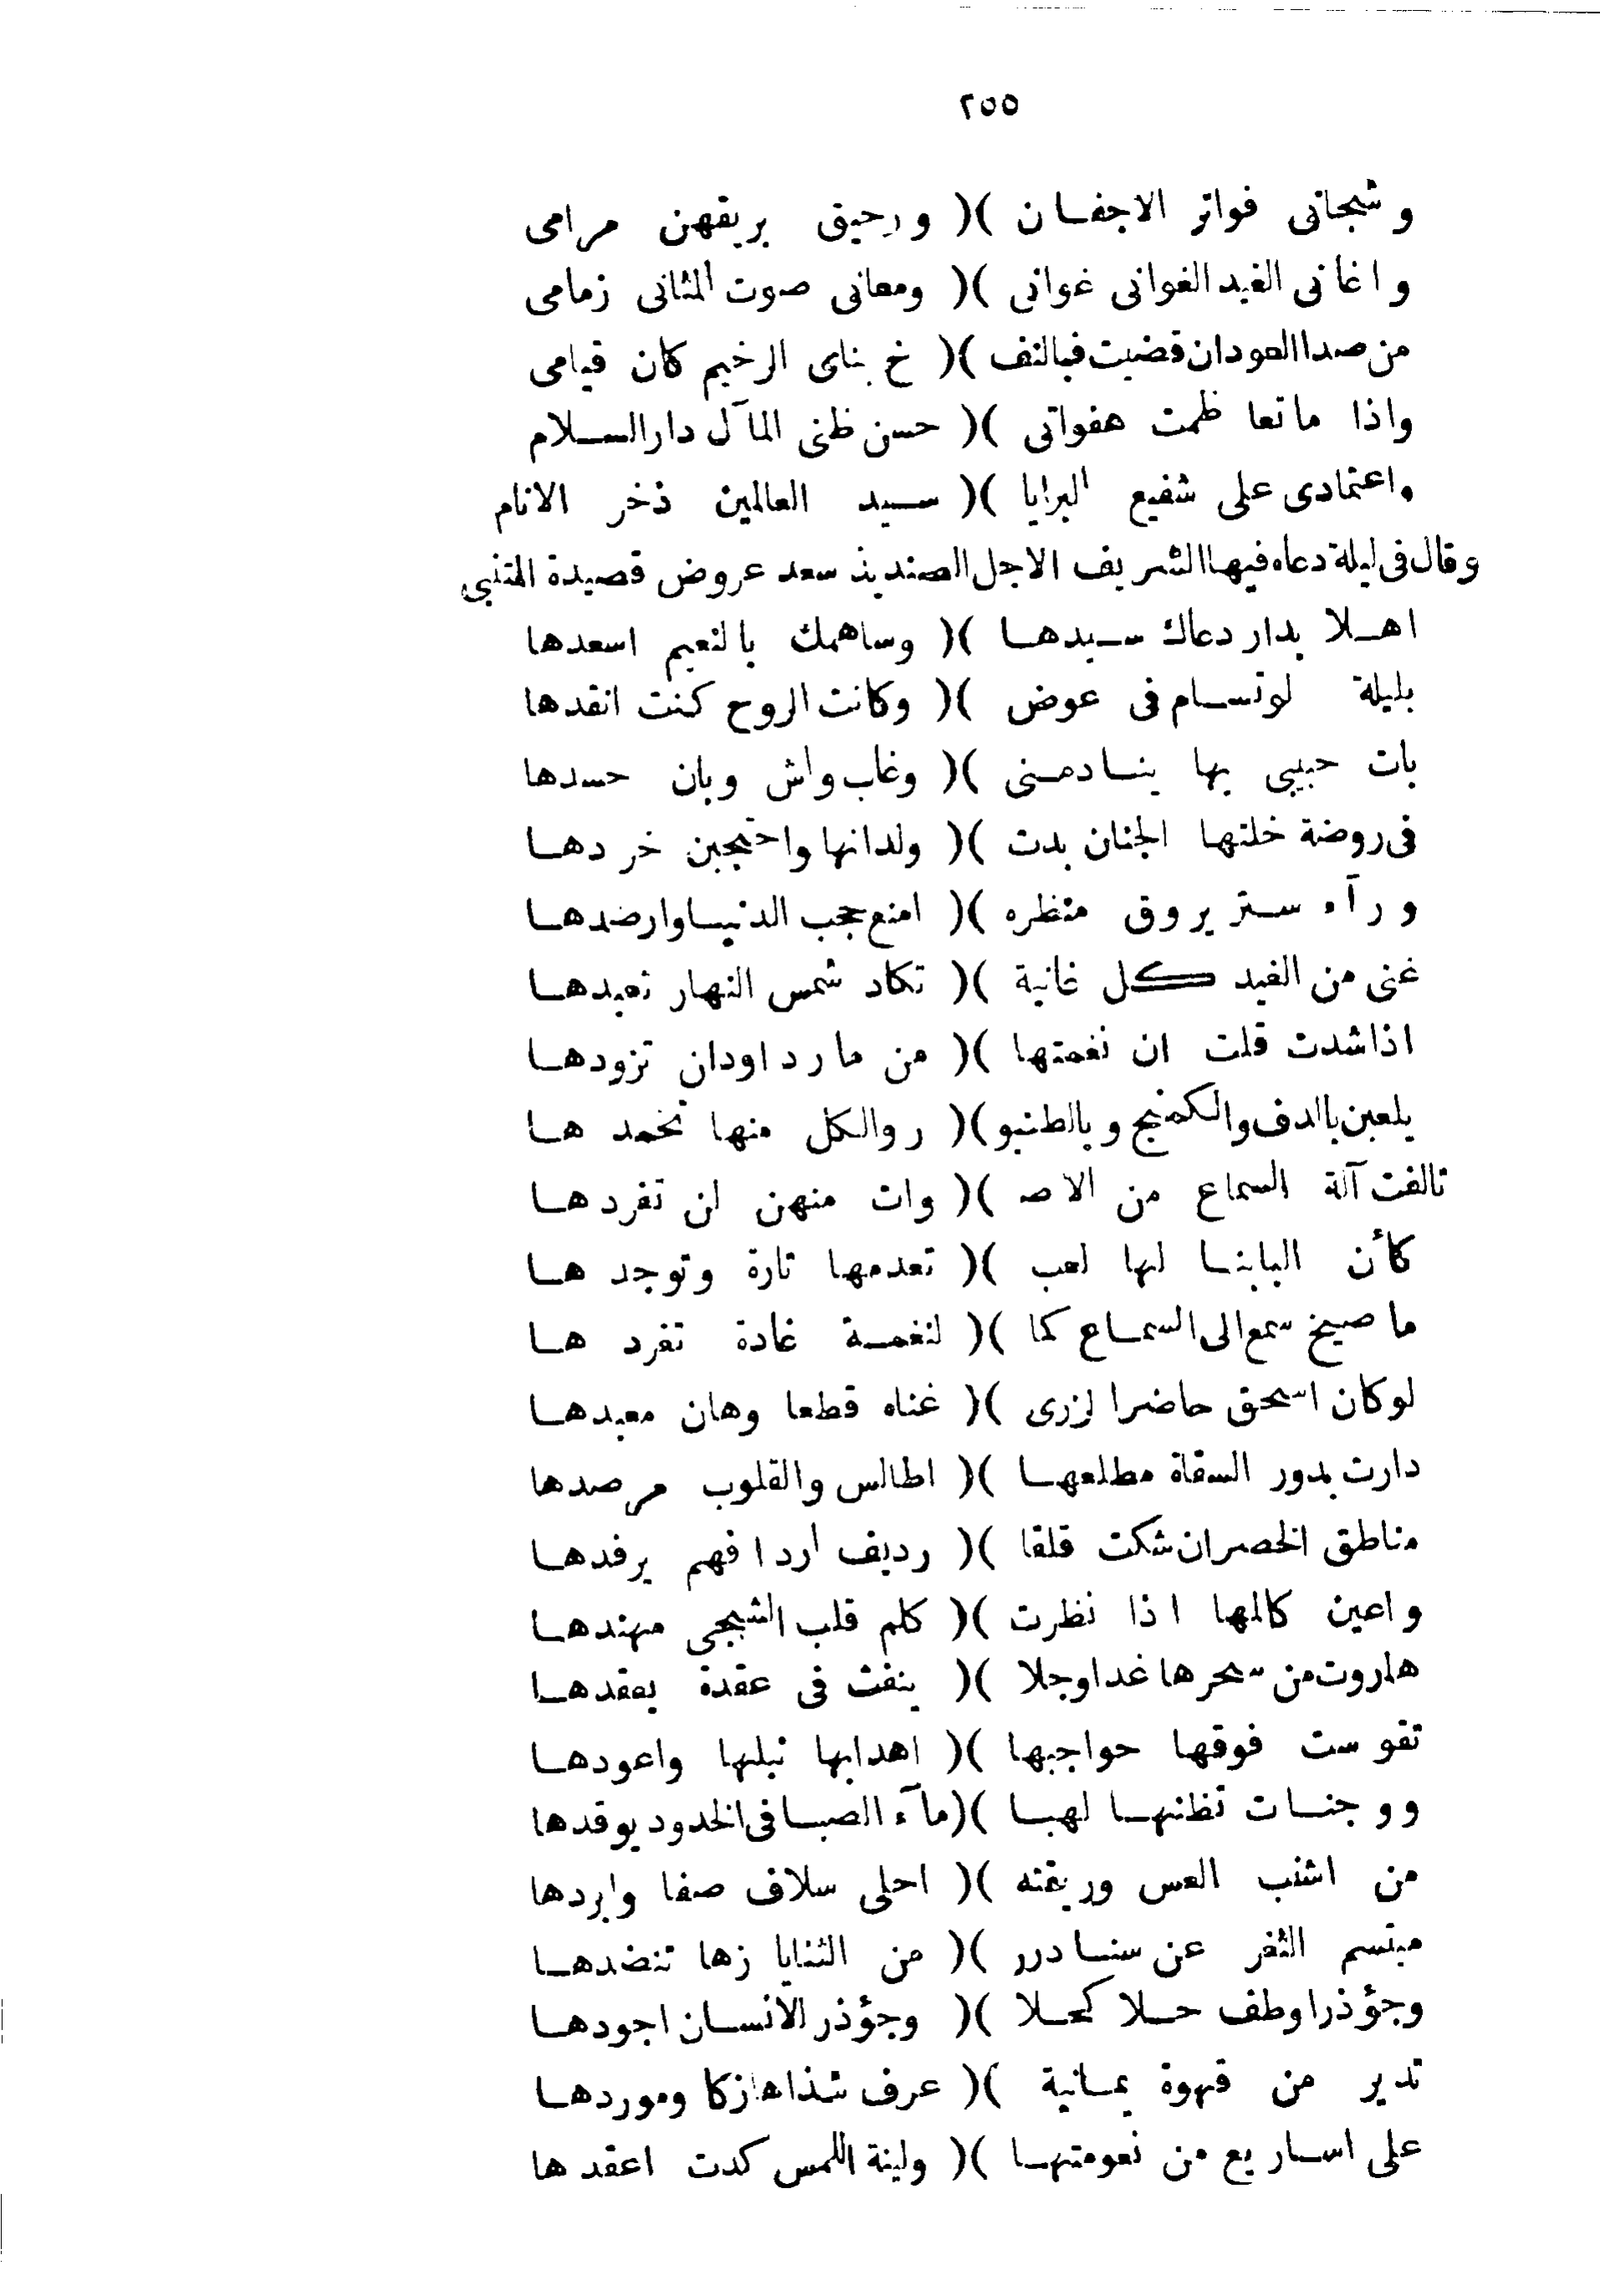 ٢٥٥
وشجانى فواتر الاجفـان )( ورحيق بريقهن مرامى
واغانى الغيد الغوانى غوانى )( ومعانى صوت المثانى زمامى
من صدا العودان قضيت فبالنف )( خ بناى الرخيم كان قيامى
واذا ما تعا ظمت هفواتى )( حسن ظنى المآل دار السـلام
واعتمادى على شفيع البرايا )( سـيد العالمين ذخر الانام
وقال فى ليلة دعاه فيها الشريف الاجل الصنديذ سعد عروض قصيدة المتنبى
اهـلا بدار دعاك سـيدهـا )( وساهمك بالنعيم اسعدها
بليلة لو تسـام فى عوض )( وكانت الروح كنت انقدها
بات حبيبى بها ينـادمـنى )( وغاب واش وبان حسدها
فى روضة خلتها الجنان بدت )( ولدانها واحتجبن خردهـا
ورآء سـتر يروق منظره )( امنع حجب الدنيـا وارضدهـا
غنى من الغيد كل غانية )( تكاد شمس النهار تعبدهـا
اذا شدت قلت ان نغمتها )( من مارد اودان تزودهـا
يلعبن بالدف والكمنج وبالطنبو )( ر والكل منها تخمد هـا
تالفت آلة السماع من الاصـ )( وات منهن لن تفردهـا
كأن البابنـا لها لعب )( تعدمها تارة وتوجد هـا
ما صيخ سمع الى السمـاع كما )( لنغمـة غادة تفرد هـا
لو كان اسحق حاضرا لزرى )( غناه قطعا وهان معبدهـا
دارت بدور السقاة مطلعهـا )( اطالس والقلوب مرصدها
مناطق الخصران شكت قلقا )( رديف اردافهم يرفدهـا
واعين كالمها اذا نظرت )( كلم قلب الشجى مهندهـا
هاروت من سحرها غدا وجلا )( ينفث فى عقدة يعقدهـا
تقوست فوقها حواجبها )( اهدابها نبلها واعودهـا
ووجنـات تظنهـا لهبـا )( مآء الصبـا فى الخدود يوقدها
من اشنب العس وريقته )( احلى سلاف صفا وابردها
مبتسم الثغر عن سنـا درر )( من الثنايا زها تنضدهـا
وجؤذر اوطف حـلا كحـلا )( وجؤذر الانسـان اجودهـا
تدير من قهوة يمـانية )( عرف شذاها زكا وموردهـا
على اسـاريع من نعومتهـا )( ولينة اللمس كدت اعقد ها